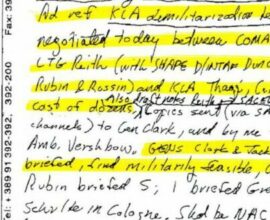 Ad ref KLA demilitarization h
negotiated today between COMA
LTG Reith (with SHAPE D/INTAF Dunc
Rubin & Rossin) and KLA Thaqi, C
cast of dozens. Also draft notes Reith SACE
copies sent (via SA
channels) to Gen Clark, and by me
Amb. Vershbow. GENs Clark & Jack
briefed, find militarily feasible, c
Rubin briefed S; I briefed Gre
Schulte in Cologne. Sked be NAC
Fax: 39
392-200
Tel: +389 91 392-392,